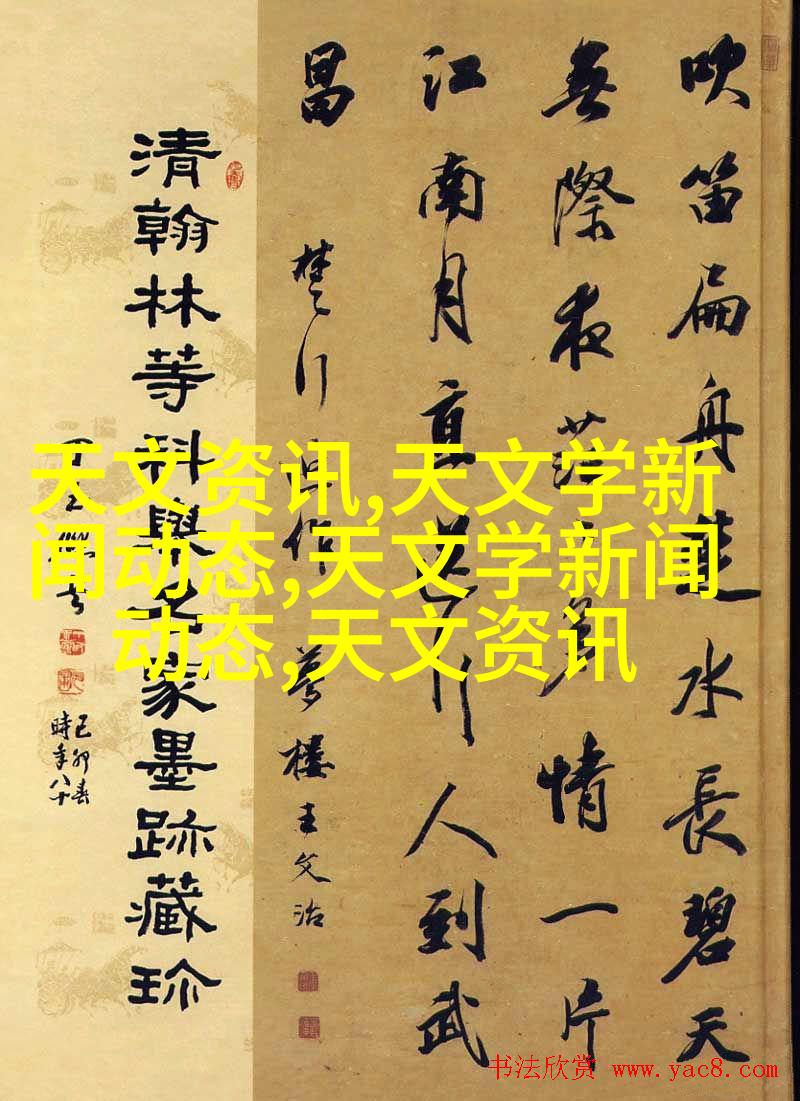 吹笛扁舟水長碧天
無際夜蒼情一片
江南月直送行人到武
昌
楚行作 夢樓王文治
清翰林等科舉名家墨跡藏珍
己卯春
時年八十
天文资讯,天文学新
闻动态,天文学新闻
动态,天文资讯
书法欣赏 www.yac8.com